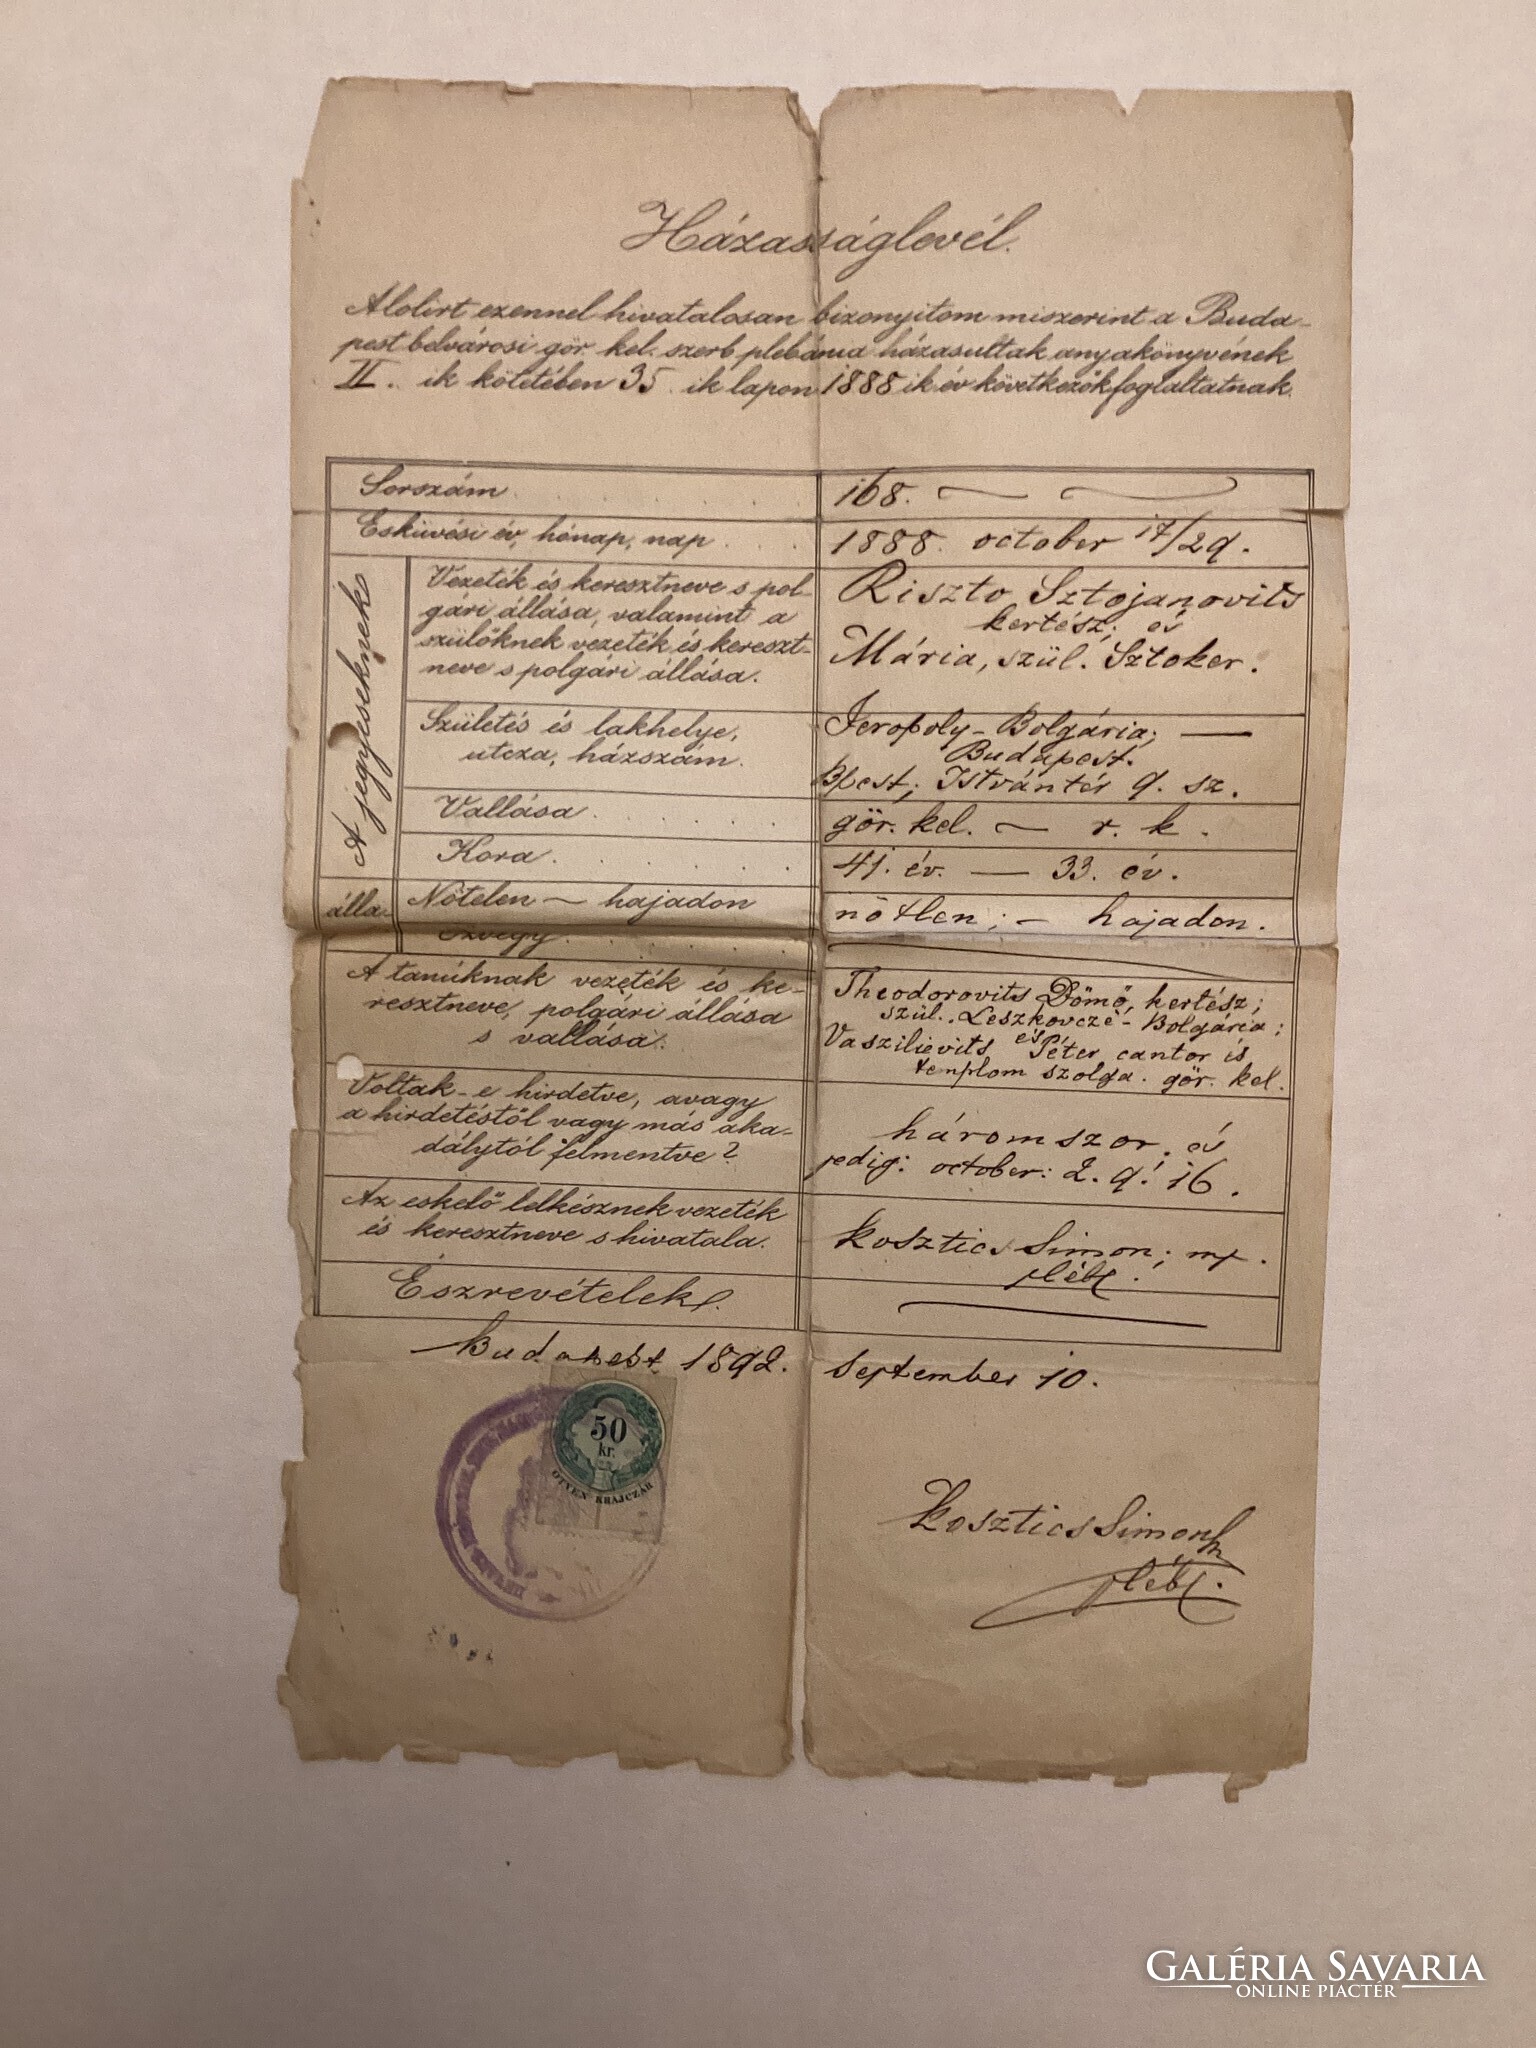 Házasságlevél.
Alolirt ezennel hivatalosan bizonyitom miszerint a Buda-
pest belvárosi gör. kel. szerb plebánia házasultak anyakönyvének
II. ik kötetében 35. ik lapon 1888 ik év következők foglaltatnak.
Sorszám
168.
Esküvési év, hónap, nap
1888. october 17/29.
A jegyeseknek
Vezeték és keresztneve s pol-
gári állása, valamint a
szülőknek vezeték és kereszt-
neve s polgári állása.
Riszto Sztojanovits
kertész; és
Mária, szül. Sztoker.
Születés és lakhelye,
utcza, házszám.
Jeropoly - Bolgária; —
Budapest.
Bpest; Istvántér 9. sz.
Vallása
gör. kel. — r. k.
Kora
41. év. — 33. év.
álla-
Nőtelen — hajadon
özvegy
nőtlen; — hajadon.
A tanúknak vezeték és ke-
resztneve, polgári állása
s vallása.
Theodorovits Dömö, kertész;
szül. Leszkovczé - Bolgária;
és
Vaszilievits Péter cantor és
templom szolga. gör. kel.
Voltak-e hirdetve, avagy
a hirdetéstől vagy más aka-
dálytól felmentve?
háromszor. és
pedig: october: 2. 9. 16.
Az eskető lelkésznek vezeték
és keresztneve s hivatala.
Kosztics Simon; mp.
pléb.
Észrevételek.
Budapest 1892. september 10.
50
kr.
ÖTVEN KRAJCZÁR
Kosztics Simon
pléb.
GALÉRIA SAVARIA
ONLINE PIACTÉR